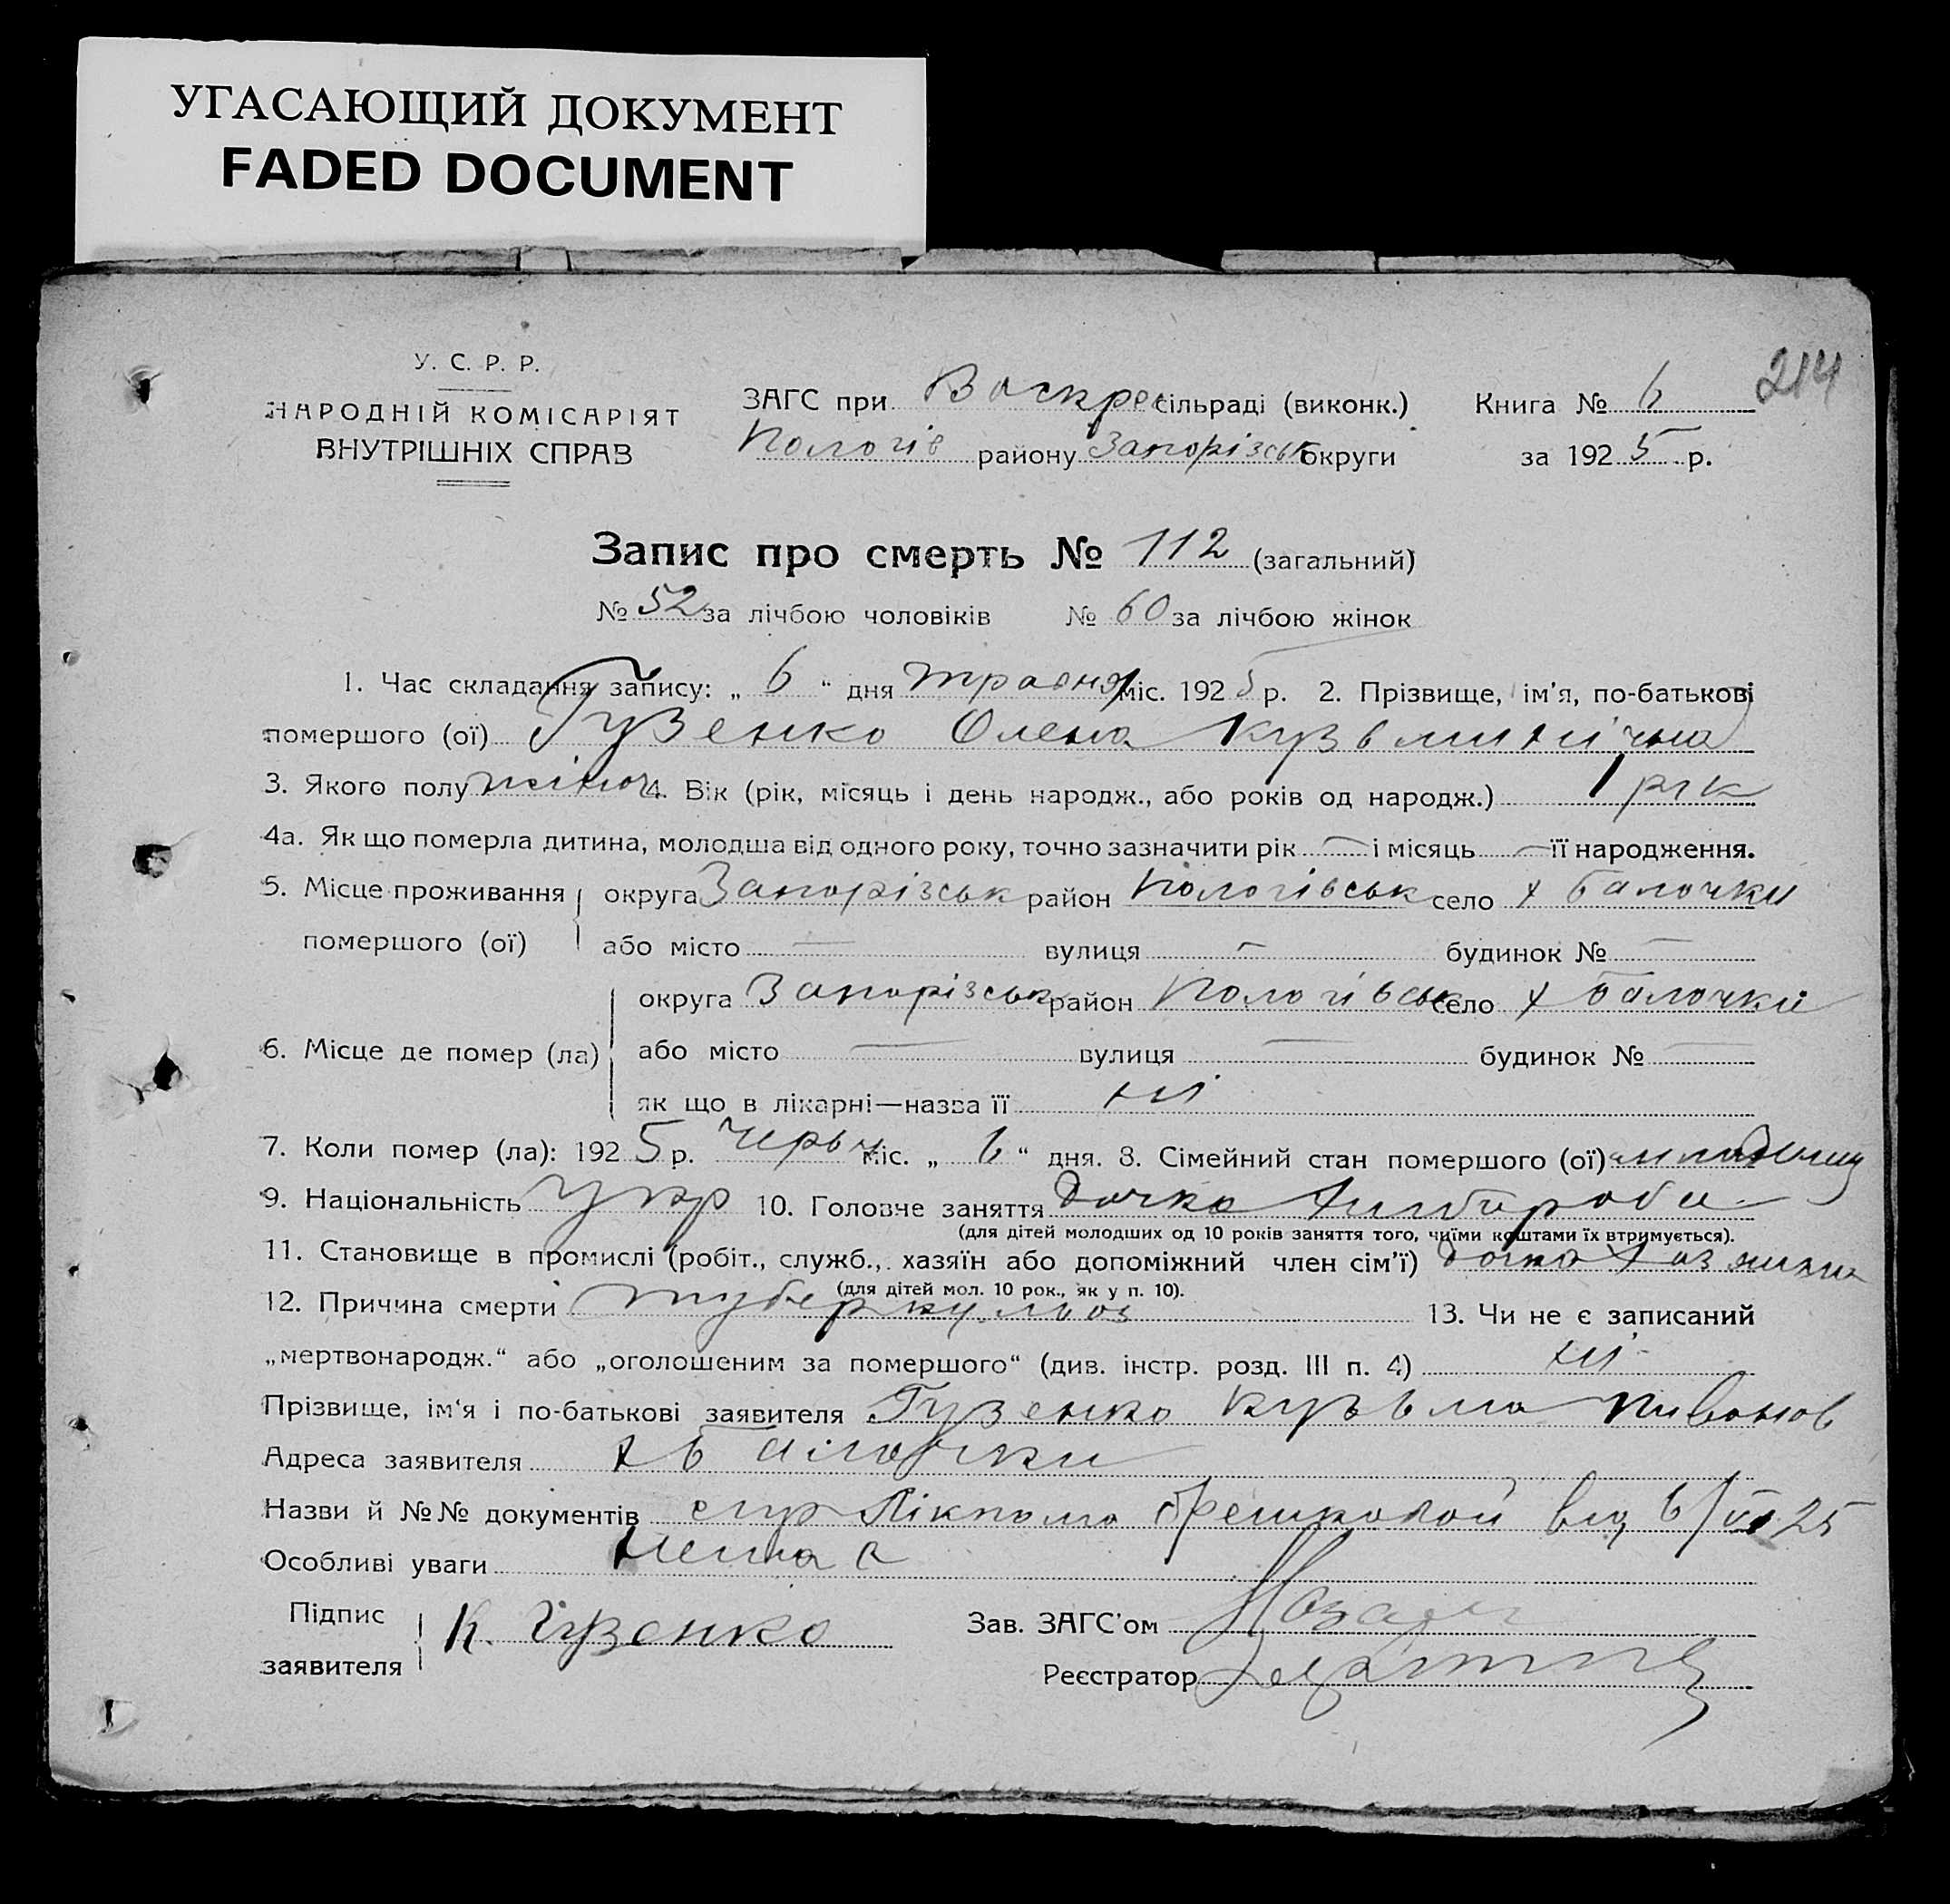 УГАСАЮЩИЙ ДОКУМЕНТ
FADED DOCUMENT
214
У. С. Р. Р.
НАРОДНІЙ КОМІСАРІЯТ
ВНУТРІШНІХ СПРАВ
ЗАГС при Воскрес сільраді (виконк.)
Пологів району Запорізськ округи
Книга № 6
за 1925 р.
Запис про смерть № 112 (загальний)
№ 52 за лічбою чоловіків № 60 за лічбою жінок
1. Час складання запису: „ 6 “ дня травня міс. 1925 р. 2. Прізвище, ім'я, по-батькові
помершого (ої) Гузенко Олена Кузьминична
3. Якого полу жіноч 4. Вік (рік, місяць і день народж., або років од народж.) 1 рік
4а. Як що померла дитина, молодша від одного року, точно зазначити рік — і місяць — її народження.
5. Місце проживання округа Запорізськ район Пологівськ село х Балочки
помершого (ої) або місто — вулиця — будинок № —
округа Запорізськ район Пологівськ село х Балочки
6. Місце де помер (ла) або місто — вулиця — будинок № —
як що в лікарні—назва її ні
7. Коли помер (ла): 1925 р. Червн міс. „ 6 “ дня. 8. Сімейний стан помершого (ої)
9. Національність Укр 10. Головне заняття дочка хлібороба
(для дітей молодших од 10 років заняття того, чиїми коштами їх втримується).
11. Становище в промислі (робіт., служб., хазяїн або допоміжний член сім'ї) дочка
(для дітей мол. 10 рок., як у п. 10).
12. Причина смерти туберкульоз 13. Чи не є записаний
„мертвонародж.“ або „оголошеним за помершого“ (див. інстр. розд. III п. 4) ні
Прізвище, ім'я і по-батькові заявителя Гузенко Кузьма Пивонов
Адреса заявителя х Балочки
Назви й №№ документів Лікпома від 6/VI 25
Особливі уваги Немає
Підпис
заявителя К. Гузенко
Зав. ЗАГС'ом
Реєстратор